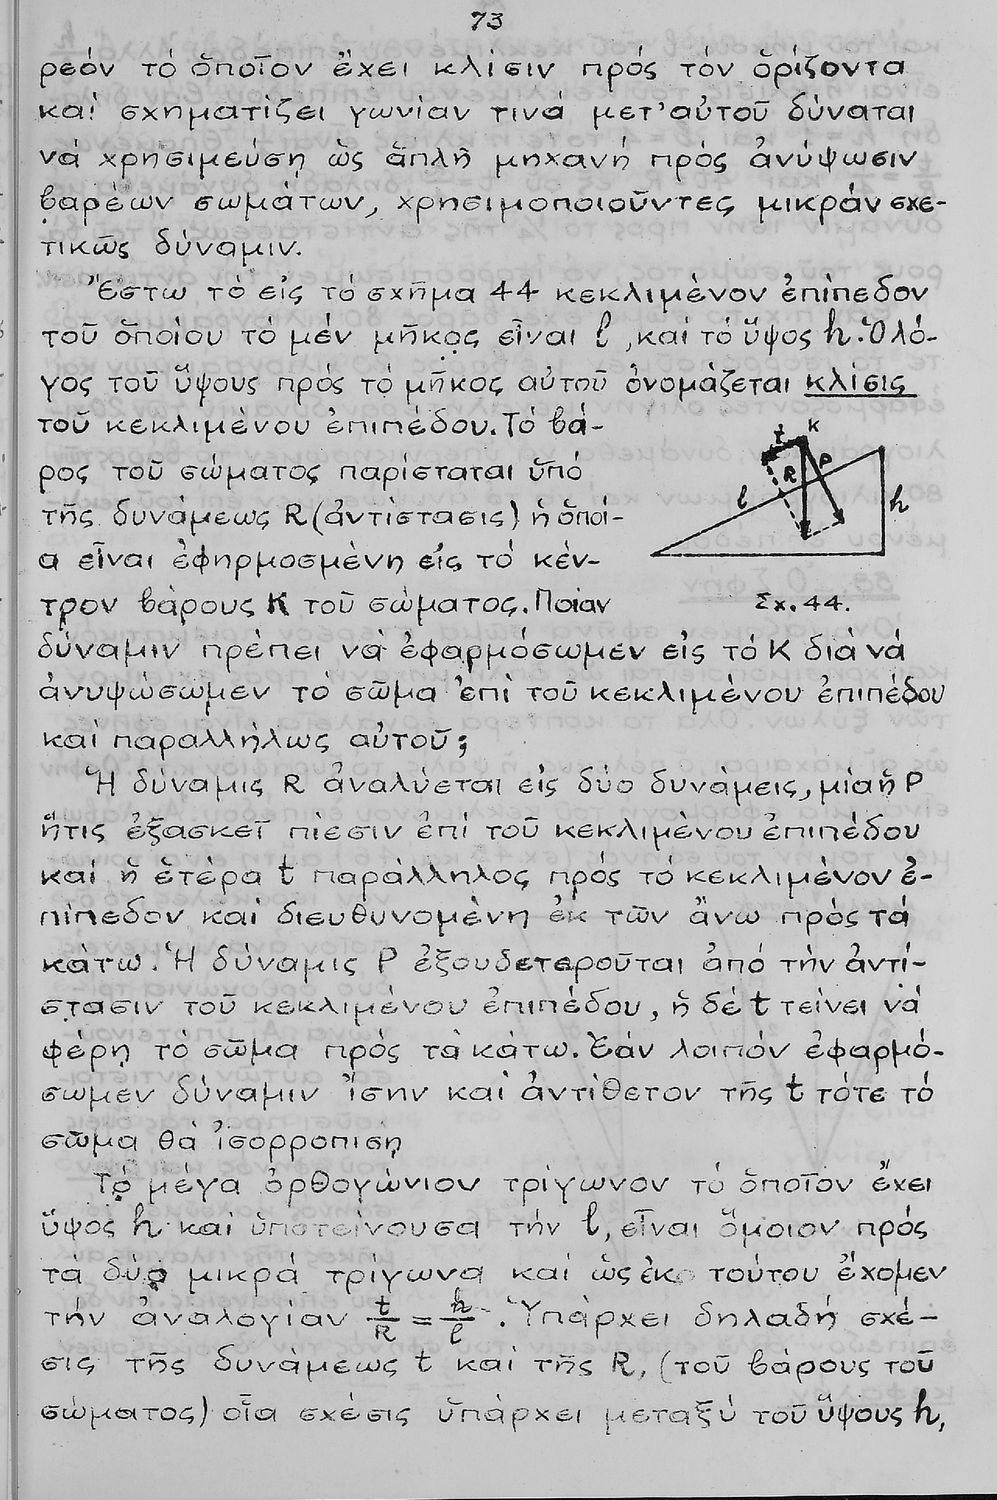 73
ρεόν τό ὅποῖον ἔχει κλίσιν πρός τόν ὁρίζοντα
καί σχηματίζει γωνίαν τινά μετ' αὐτοῦ δύναται
νά χρησιμεύσῃ ὡς ἁπλῆ μηχανή πρός ἀνύψωσιν
βαρέων σωμάτων, χρησιμοποιοῦντες μικράν σχε-
τικῶς δύναμιν.
Ἔστω τό εἰς τό σχῆμα 44 κεκλιμένον ἐπίπεδον
τοῦ ὁποίου τό μέν μῆκος εἶναι l, καί τό ὕψος h. Ὁ λό-
γος τοῦ ὕψους πρός τό μῆκος αὐτοῦ ὀνομάζεται κλίσις
τοῦ κεκλιμένου ἐπιπέδου. Τό βά-
ρος τοῦ σώματος παρίσταται ὑπό
τῆς δυνάμεως R (ἀντίστασις) ἡ ὁποί-
α εἶναι ἐφηρμοσμένη εἰς τό κέν-
τρον βάρους Κ τοῦ σώματος. Ποίαν
t K
R P
l
h
Σχ. 44.
δύναμιν πρέπει νά ἐφαρμόσωμεν εἰς τό Κ διά νά
ἀνυψώσωμεν τό σῶμα ἐπί τοῦ κεκλιμένου ἐπιπέδου
καί παραλλήλως αὐτοῦ;
Ἡ δύναμις R ἀναλύεται εἰς δύο δυνάμεις, μία ἡ P
ἥτις ἐξασκεῖ πίεσιν ἐπί τοῦ κεκλιμένου ἐπιπέδου
καί ἡ ἑτέρα t παράλληλος πρός τό κεκλιμένον ἐ-
πίπεδον καί διευθυνομένη ἐκ τῶν ἄνω πρός τά
κάτω. Ἡ δύναμις P ἐξουδετεροῦται ἀπό τήν ἀντί-
στασιν τοῦ κεκλιμένου ἐπιπέδου, ἡ δέ t τείνει νά
φέρῃ τό σῶμα πρός τά κάτω. Ἐάν λοιπόν ἐφαρμό-
σωμεν δύναμιν ἴσην καί ἀντίθετον τῆς t τότε τό
σῶμα θά ἰσορροπίσῃ
Τό μέγα ὀρθογώνιον τρίγωνον τό ὁποῖον ἔχει
ὕψος h καί ὑποτείνουσα τήν l, εἶναι ὅμοιον πρός
τά δύο μικρά τρίγωνα καί ὡς ἐκ τούτου ἔχομεν
τήν ἀναλογίαν t/R = h/l. Ὑπάρχει δηλαδή σχέ-
σις τῆς δυνάμεως t καί τῆς R, (τοῦ βάρους τοῦ
σώματος) οἷα σχέσις ὑπάρχει μεταξύ τοῦ ὕψους h,